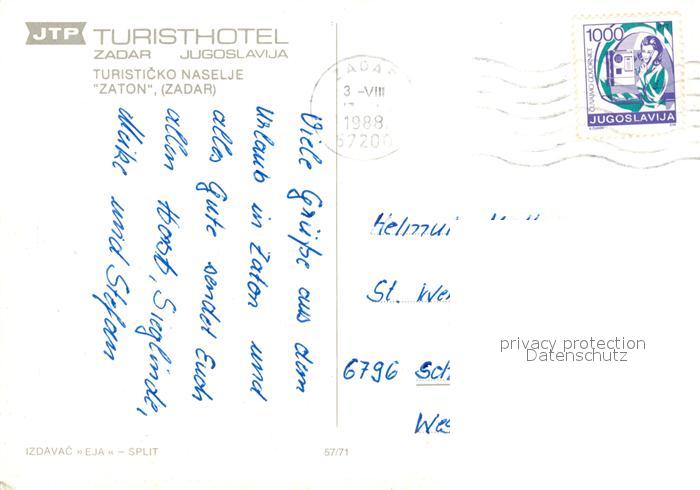 JTP TURISTHOTEL
ZADAR JUGOSLAVIJA
TURISTIČKO NASELJE
"ZATON", (ZADAR)
ZADAR
3 -VIII
1988
57200
1000
JUGOSLAVIJA
Viele Grüße aus dem
Urlaub in Zaton und
alles Gute sendet Euch
allen Horst, Sieglinde,
Maike und Stefan
Helmut
St. We
6796 Sch
Wes
privacy protection
Datenschutz
IZDAVAČ »EJA« – SPLIT
57/71